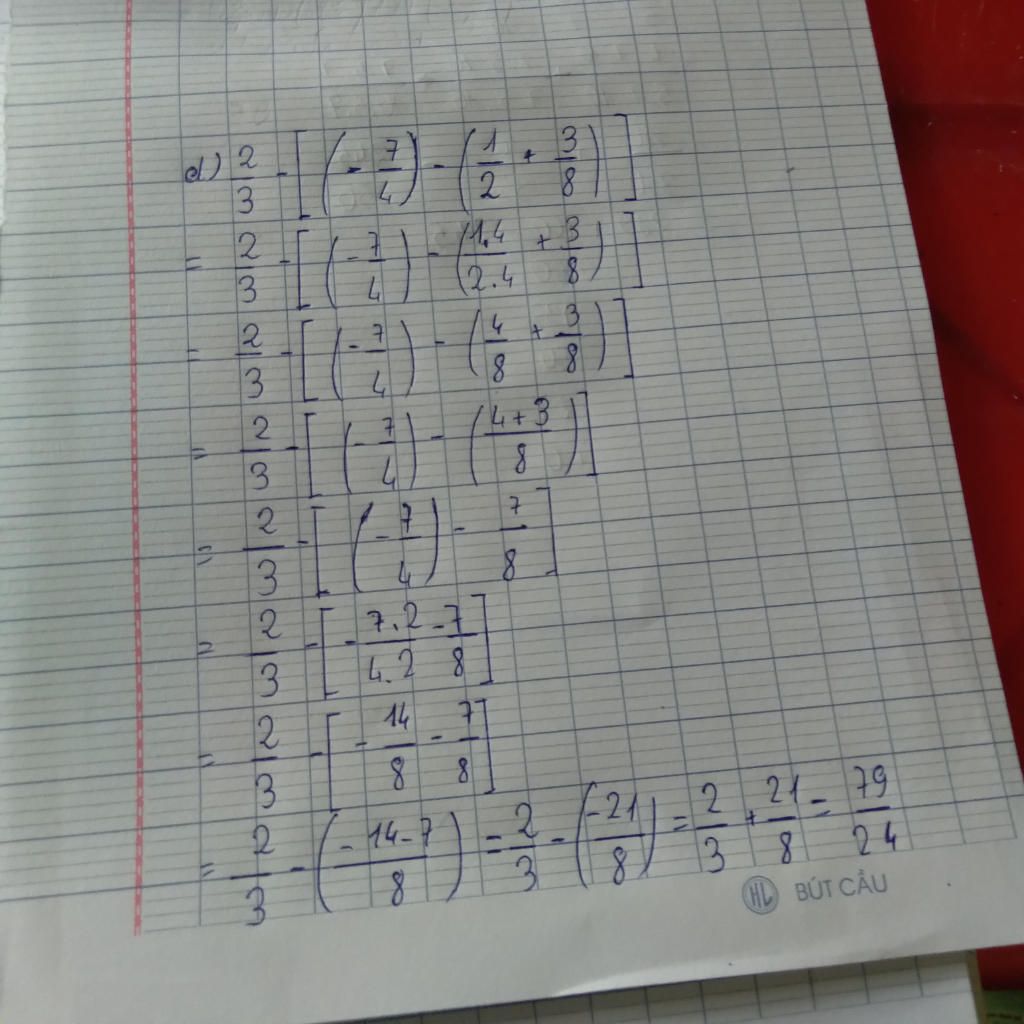 d) 2/3 - [(- 7/4) - (1/2 + 3/8)]
= 2/3 - [(- 7/4) - (1.4/2.4 + 3/8)]
= 2/3 - [(- 7/4) - (4/8 + 3/8)]
= 2/3 - [(- 7/4) - ((4+3)/8)]
= 2/3 - [(- 7/4) - 7/8]
= 2/3 - [- 7.2/4.2 - 7/8]
= 2/3 - [- 14/8 - 7/8]
= 2/3 - ((- 14 - 7)/8) = 2/3 - (-21/8) = 2/3 + 21/8 = 79/24
HL BÚT CẦU